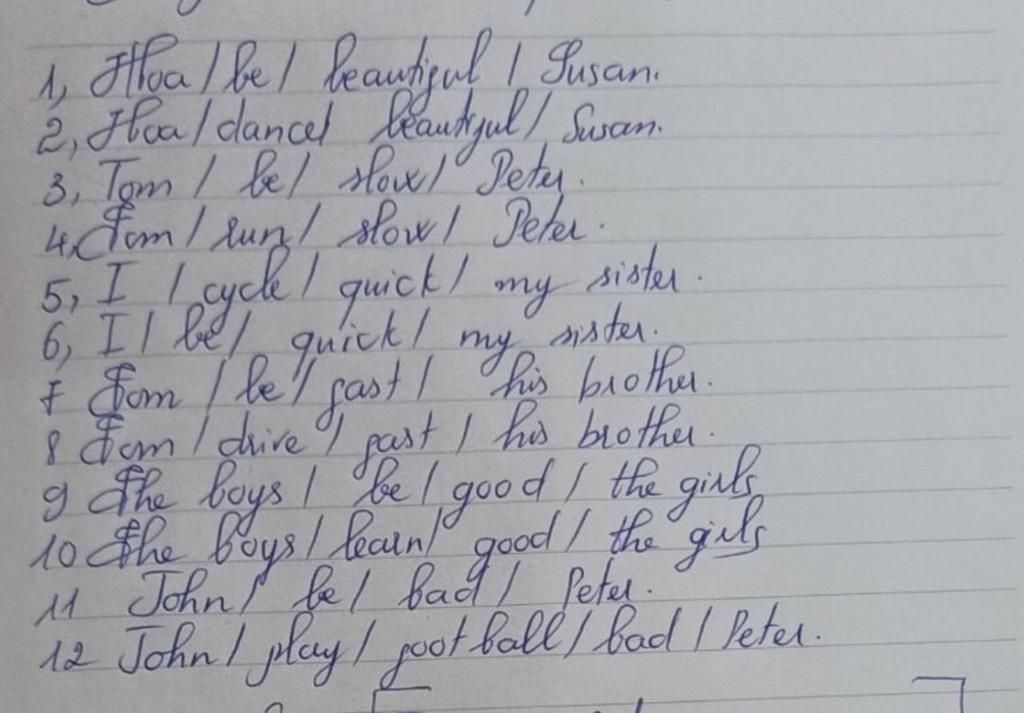 1, Hoa / be / beautiful / Susan.
2, Hoa / dance / beautiful / Susan.
3, Tom / be / slow / Peter.
4, Tom / run / slow / Peter.
5, I / cycle / quick / my sister.
6, I / be / quick / my sister.
7 Tom / be / fast / his brother.
8 Tom / drive / fast / his brother.
9 The boys / be / good / the girls
10 The boys / learn / good / the girls
11 John / be / bad / Peter.
12 John / play / football / bad / Peter.